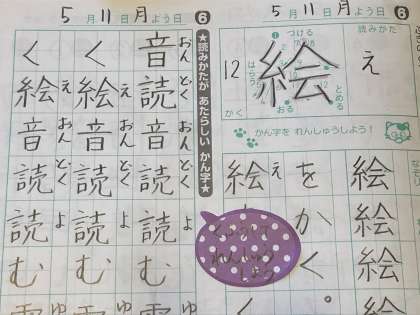 5月11日月よう日 6
つける
はらう
とめる
おる
絵
12
かく
読みかた
え
かん字を れんしゅうしよう!
絵
絵
絵
をかく。
絵え
れんしゅう
5月11日月よう日 6
★読みかたが あたらしい かん字★
音おん読どく音おん読どく読よむ
く絵え音おん読どく読よむ
く絵え音おん読どく読よむ